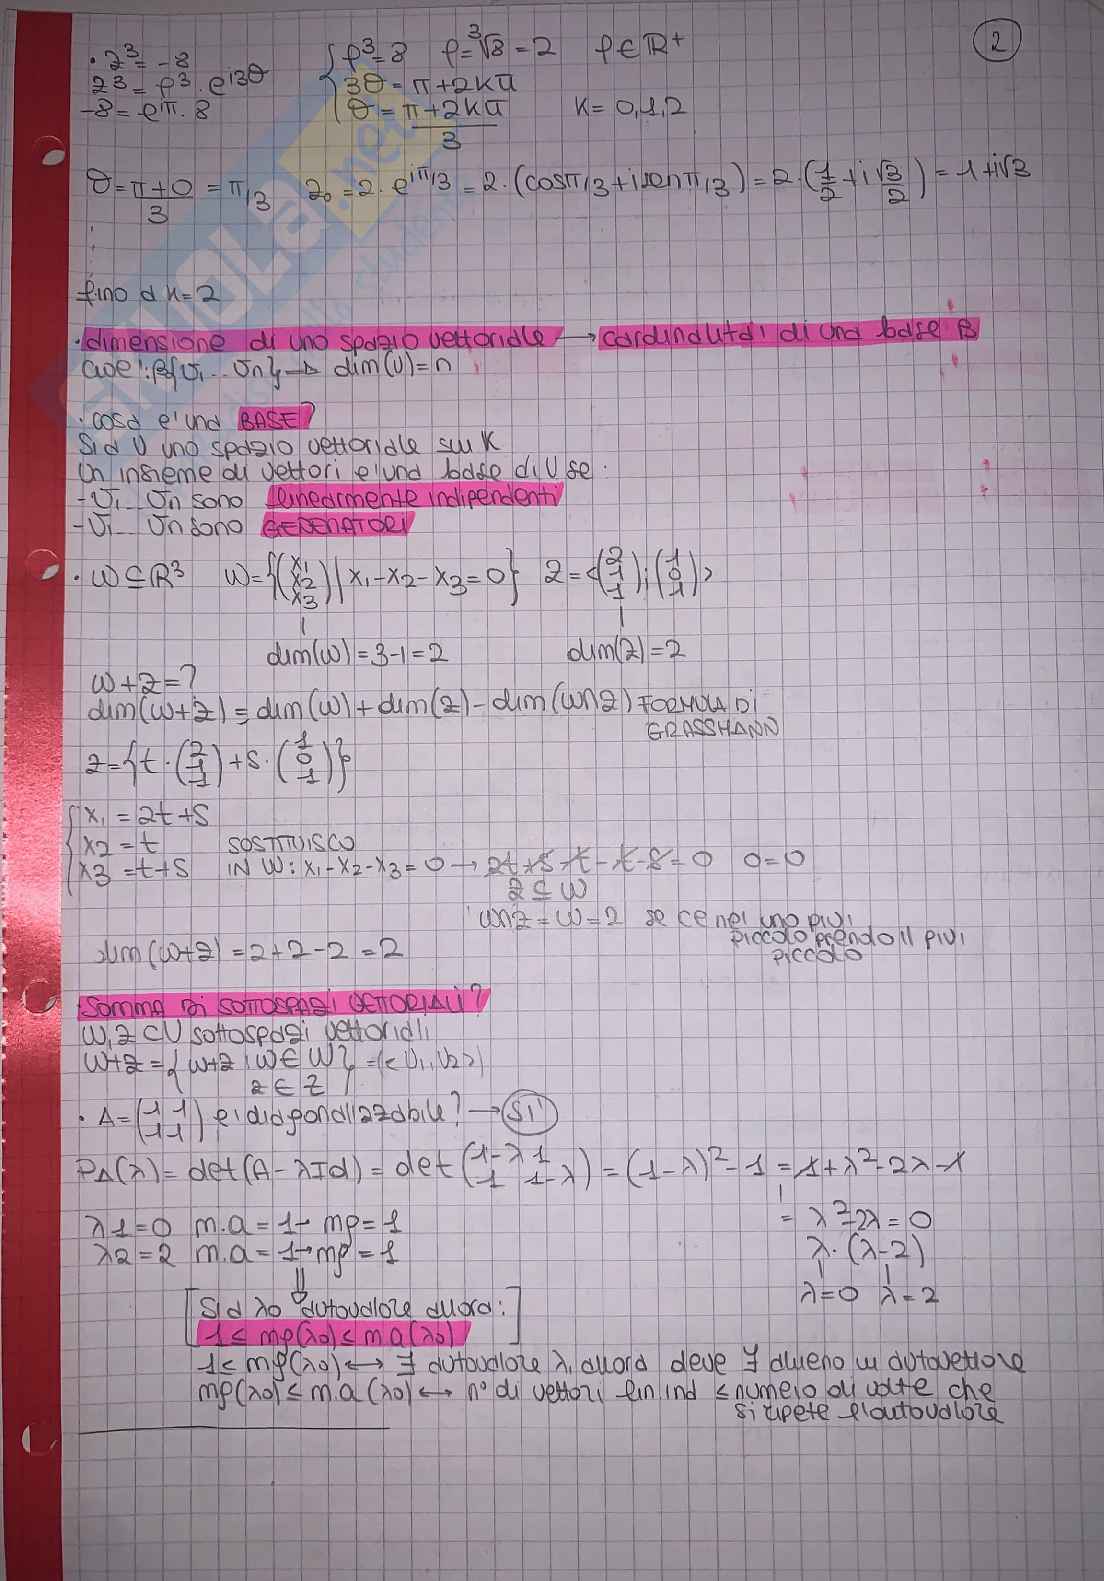 2
· z³ = -8
z³ = ρ³ · e^i3θ
-8 = e^π · 8
{ ρ³ = 8 ρ = ³√8 = 2 ρ ∈ R⁺
3θ = π + 2kπ
θ = (π + 2kπ)/3 K = 0,1,2
θ = (π + 0)/3 = π/3 z₀ = 2 · e^iπ/3 = 2 · (cosπ/3 + isenπ/3) = 2 · (1/2 + i √3/2) = 1 + i√3
fino a k = 2
· dimensione di uno spazio vettoriale → cardinalità di una base B
cioe': B{v₁ ... vn} → dim(v) = n
· cosa e' una BASE?
Sia V uno spazio vettoriale su K
Un insieme di vettori e' una base di V se:
- v₁ ... vn sono linearmente indipendenti
- v₁ ... vn sono GENERATORI
· W ⊆ R³ W = {(x₁ x₂ x₃) | x₁ - x₂ - x₃ = 0} Z = <(2 1 1); (1 0 1)>
dim(W) = 3-1 = 2 dim(Z) = 2
W + Z = ?
dim(W+Z) = dim(W) + dim(Z) - dim(W∩Z) FORMULA DI
GRASSMANN
Z = {t · (2 1 1) + s · (1 0 1)}
{ x₁ = 2t + s
x₂ = t SOSTITUISCO
x₃ = t + s IN W: x₁ - x₂ - x₃ = 0 → 2t + s - t - t - s = 0 0 = 0
Z ⊆ W
W∩Z = W = 2 se ce nei uno piu'
piccolo prendo il piu'
piccolo
dim(W+Z) = 2 + 2 - 2 = 2
· SOMMA DI SOTTOSPAZI VETTORIALI?
W, Z ⊂ V sottospazi vettoriali
W + Z = {w + z | w ∈ W
z ∈ Z} = (< v₁, v₂ >)
· A = (1 1 1 1) e' diagonalizzabile? → SI'
PA(λ) = det(A - λId) = det(1-λ 1 1 1-λ) = (1-λ)² - 1 = 1 + λ² - 2λ - 1
= λ² - 2λ = 0
λ · (λ - 2)
λ = 0 λ = 2
λ1 = 0 m.a = 1 → mg = 1
λ2 = 2 m.a = 1 → mg = 1
[Sia λ0 autovalore allora:
1 ≤ mg(λ0) ≤ ma(λ0)]
1 ≤ mg(λ0) ↔ ∃ autovalore λ, allora deve ∃ almeno un autovettore
mg(λ0) ≤ m.a(λ0) ↔ n° di vettori lin ind ≤ numero di volte che
si ripete l'autovalore